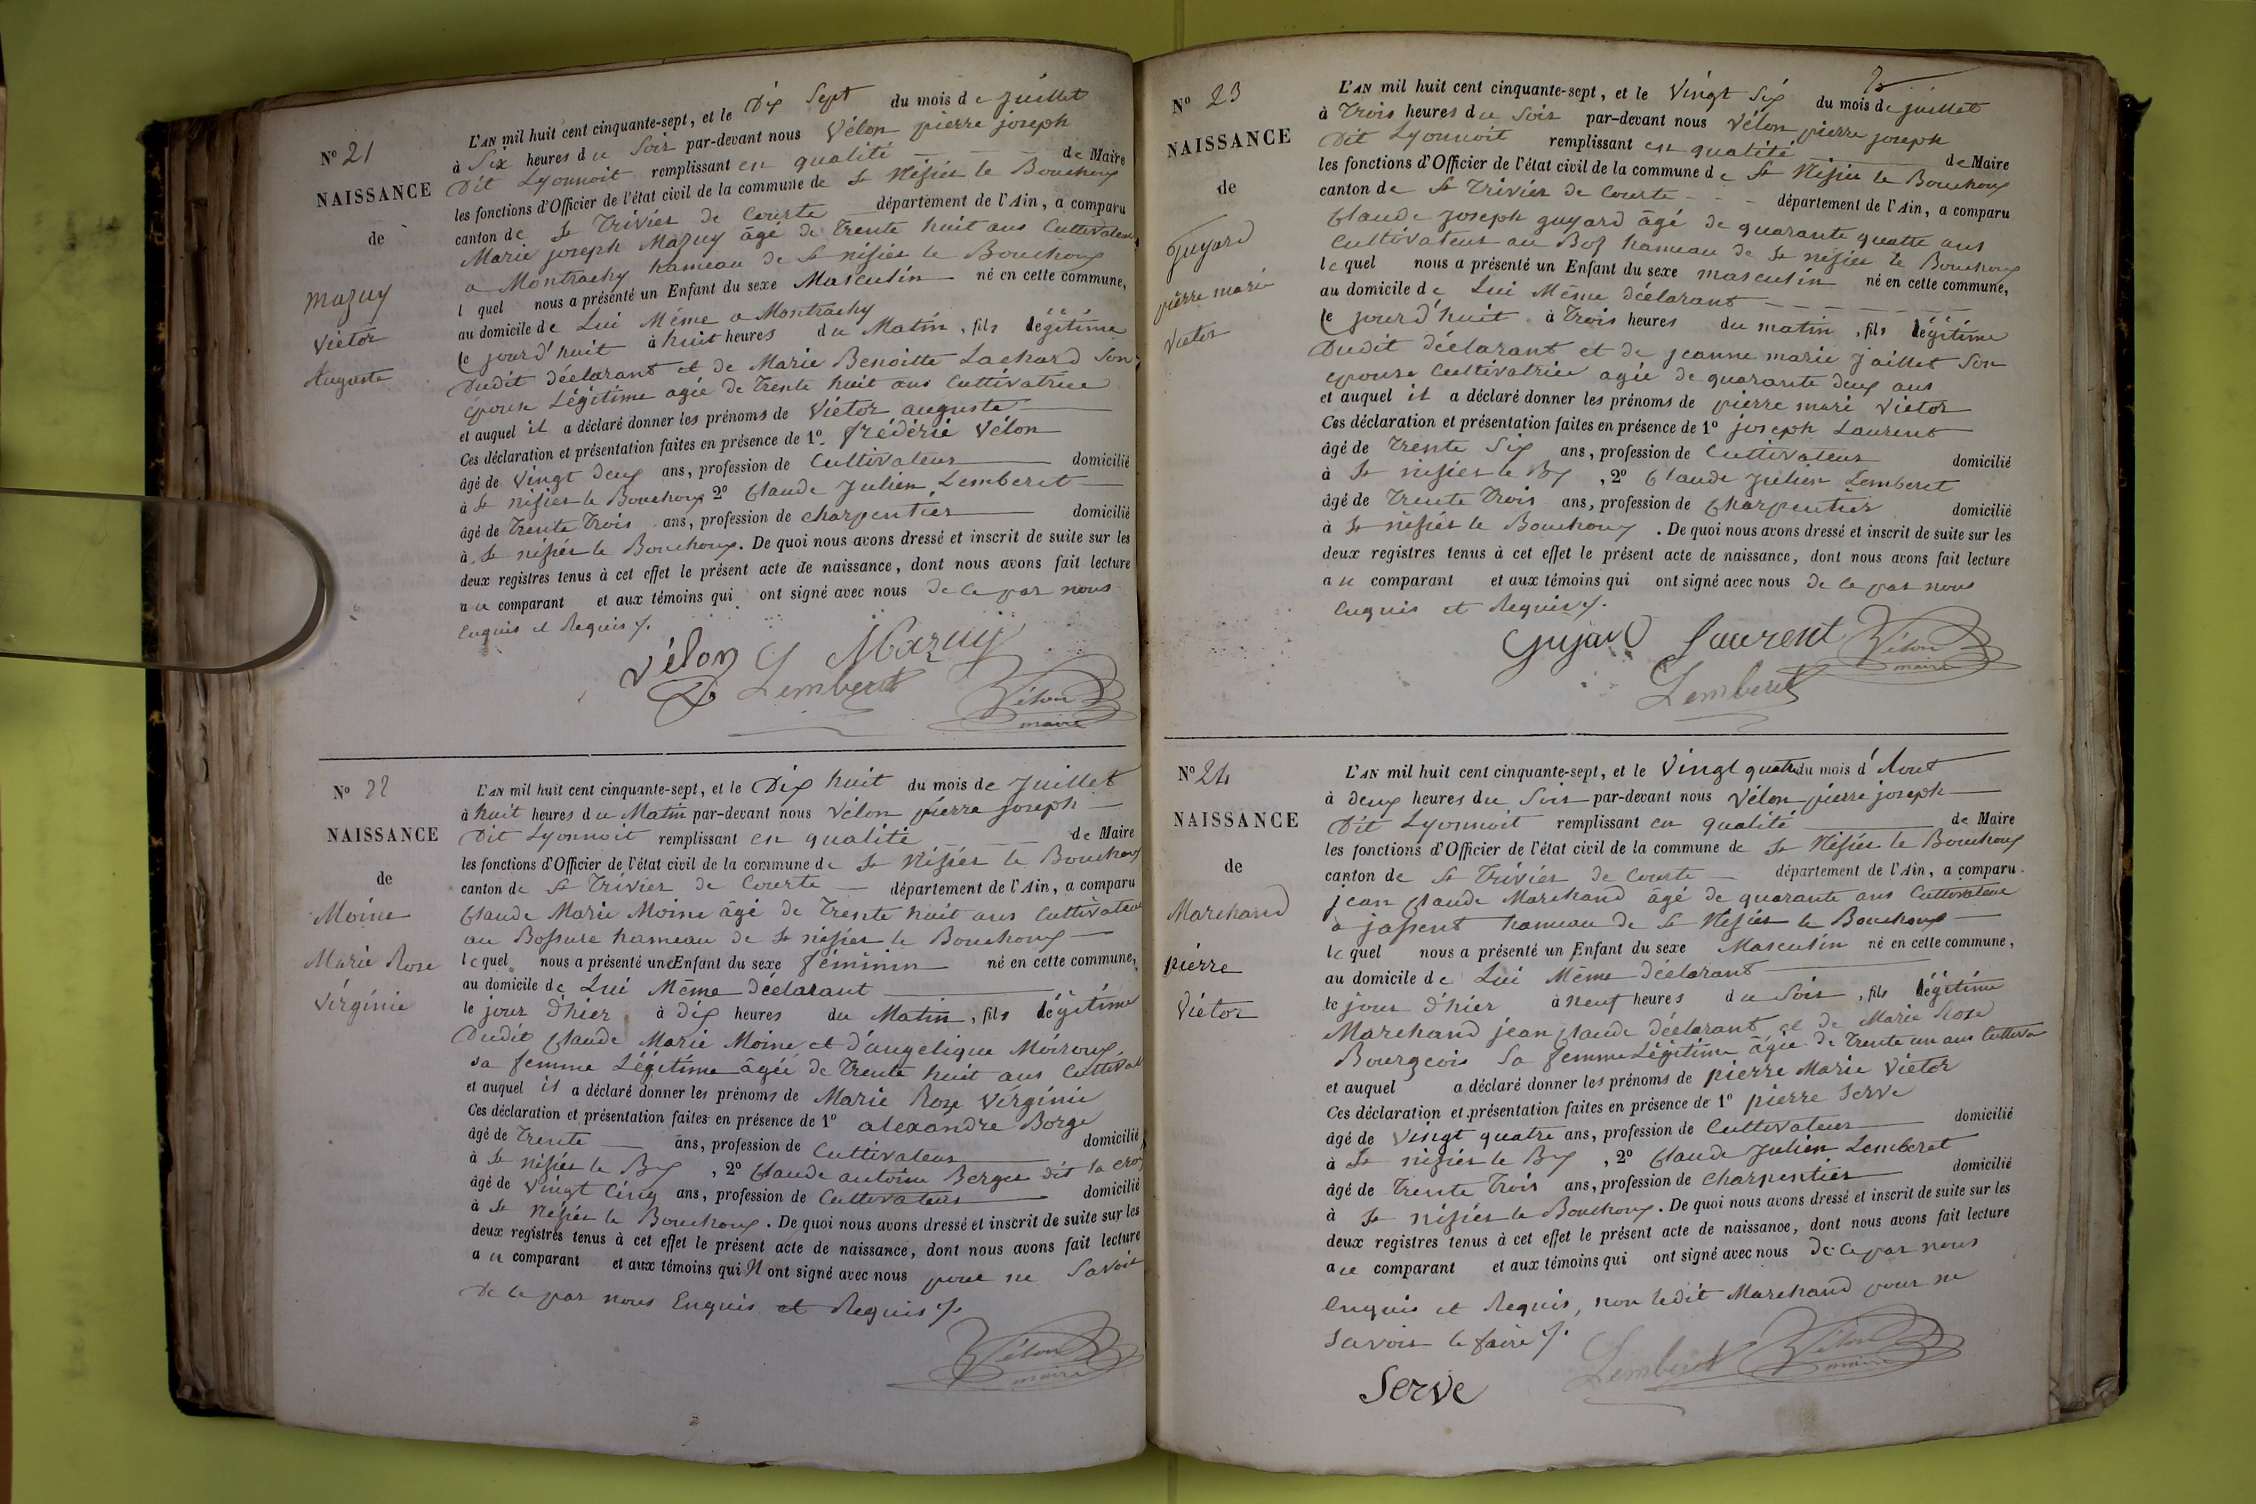 N° 21
NAISSANCE
de
Mazuy
Victor
Auguste
L'AN mil huit cent cinquante-sept, et le Dix Sept du mois de juillet
à Six heures du Soir par-devant nous Vélon pierre joseph
Dit Lyonnoit remplissant en qualité de Maire
les fonctions d'Officier de l'état civil de la commune de St Nisier le Bouchoux
canton de St Trivier de Courte département de l'Ain, a comparu
Marie joseph Mazuy âgé de Trente huit ans Cultivateur
a Montrachy hameau de St nisier le Bouchoux
l quel nous a présenté un Enfant du sexe Masculin né en cette commune,
au domicile de Lui Même a Montrachy
le jourd'huit à huit heures du Matin, fils légitime
Dudit déclarant et de Marie Benoitte Lachard Son
épouse Légitime agée de Trente huit ans Cultivatrice
et auquel il a déclaré donner les prénoms de Victor auguste
Ces déclaration et présentation faites en présence de 1° frédéric Vélon
âgé de Vingt deux ans, profession de Cultivateur domicilié
à St nisier le Bouchoux 2° Claude Julien Lemberet
âgé de Trente Trois ans, profession de charpentier domicilié
à St nisier le Bouchoux. De quoi nous avons dressé et inscrit de suite sur les
deux registres tenus à cet effet le présent acte de naissance, dont nous avons fait lecture
au comparant et aux témoins qui ont signé avec nous de ce par nous
Enquis et Requis /.
Vélon Mazuy
Lemberet Vélon
maire
N° 22
NAISSANCE
de
Moine
Marie Rose
Virginie
L'AN mil huit cent cinquante-sept, et le Dix huit du mois de Juillet
à huit heures du Matin par-devant nous Vélon pierre joseph
Dit Lyonnoit remplissant en qualité de Maire
les fonctions d'Officier de l'état civil de la commune de St Nisier le Bouchoux
canton de St Trivier de Courte département de l'Ain, a comparu
Claude Marie Moine âgé de Trente huit ans Cultivateur
au Bossure hameau de St nisier le Bouchoux
lequel nous a présenté une Enfant du sexe féminin né en cette commune,
au domicile de Lui Même déclarant
le jour d'hier à dix heures du Matin, fils légitime
Dudit Claude Marie Moine et d'angelique Moiroux
sa femme Légitime âgée de Trente huit ans Cultivat
et auquel il a déclaré donner les prénoms de Marie Roze Virginie
Ces déclaration et présentation faites en présence de 1° alexandre Borge
âgé de Trente ans, profession de Cultivateur domicilié
à St nisier le Bx, 2° Claude antoine Berger dit la croy
âgé de Vingt Cinq ans, profession de Cultivateur domicilié
à St Nisier le Bouchoux. De quoi nous avons dressé et inscrit de suite sur les
deux registres tenus à cet effet le présent acte de naissance, dont nous avons fait lecture
au comparant et aux témoins qui N ont signé avec nous pour ne Savoir
de ce par nous Enquis et Requis /.
Vélon
maire
N° 23
NAISSANCE
de
Guyard
pierre marie
Victor
L'AN mil huit cent cinquante-sept, et le Vingt Six du mois de juillet
à Trois heures du Soir par-devant nous Vélon pierre joseph
Dit Lyonnoit remplissant en qualité de Maire
les fonctions d'Officier de l'état civil de la commune de St Nisier le Bouchoux
canton de St Trivier de Courte département de l'Ain, a comparu
Claude joseph guyard âgé de quarante quatre ans
Cultivateur au Boz hameau de St nisier le Bouchoux
lequel nous a présenté un Enfant du sexe masculin né en cette commune,
au domicile de Lui Même déclarant
le jourd'huit à Trois heures du matin, fils légitime
Dudit déclarant et de jeanne marie Jaillet Son
épouse Cultivatrice agée de quarante deux ans
et auquel il a déclaré donner les prénoms de pierre mari Victor
Ces déclaration et présentation faites en présence de 1° joseph Laurent
âgé de Trente Six ans, profession de Cultivateur domicilié
à St nisier le Bx, 2° Claude Julien Lemberet
âgé de Trente Trois ans, profession de Charpentier domicilié
à St nisier le Bouchoux. De quoi nous avons dressé et inscrit de suite sur les
deux registres tenus à cet effet le présent acte de naissance, dont nous avons fait lecture
au comparant et aux témoins qui ont signé avec nous de ce par nous
Enquis et Requis /.
Guyard Laurent Vélon
Lemberet maire
N° 24
NAISSANCE
de
Marchand
pierre
Victor
L'AN mil huit cent cinquante-sept, et le Vingt quatre du mois d'Aout
à deux heures du Soir par-devant nous Vélon pierre joseph
Dit Lyonnoit remplissant en qualité de Maire
les fonctions d'Officier de l'état civil de la commune de St Nisier le Bouchoux
canton de St Trivier de Courte département de l'Ain, a comparu
jean Claude Marchand âgé de quarante ans Cultivateur
à jassent hameau de St Nisier le Bouchoux
lequel nous a présenté un Enfant du sexe Masculin né en cette commune,
au domicile de Lui Même déclarant
le jour d'hier à Neuf heures du Soir, fils légitime
Marchand jean Claude déclarant, et de Marie Rose
Bourgeois Sa femme Légitime âgée de Trente un ans Cultiva
et auquel a déclaré donner les prénoms de pierre Marie Victor
Ces déclaration et présentation faites en présence de 1° pierre Serve
âgé de Vingt quatre ans, profession de Cultivateur domicilié
à St nisier le Bx, 2° Claude Julien Lemberet
âgé de Trente Trois ans, profession de Charpentier domicilié
à St nisier le Bouchoux. De quoi nous avons dressé et inscrit de suite sur les
deux registres tenus à cet effet le présent acte de naissance, dont nous avons fait lecture
au comparant et aux témoins qui ont signé avec nous de ce par nous
Enquis et Requis, non ledit Marchand pour ne
Savoir le faire /.
Serve Lemberet Vélon
maire